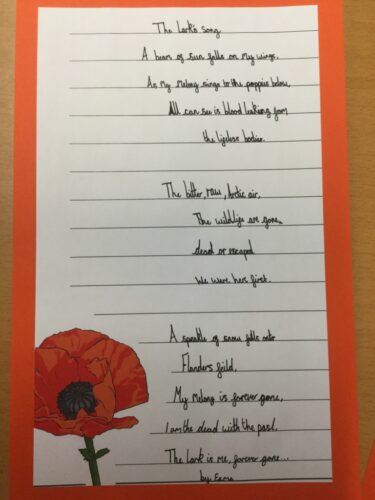 The Lark's song
A beam of sun falls on my wings,
As my Melody sings to the poppies below,
All can see is blood leaking from
the lifeless bodies.
The bitter, raw, Arctic air,
The wildlife are gone,
dead or escaped
We were here first.
A sprinkle of snow falls onto
Flanders feild,
My Melody is forever gone,
I am the dead with the past.
The Lark is me, forever gone...
by Esma